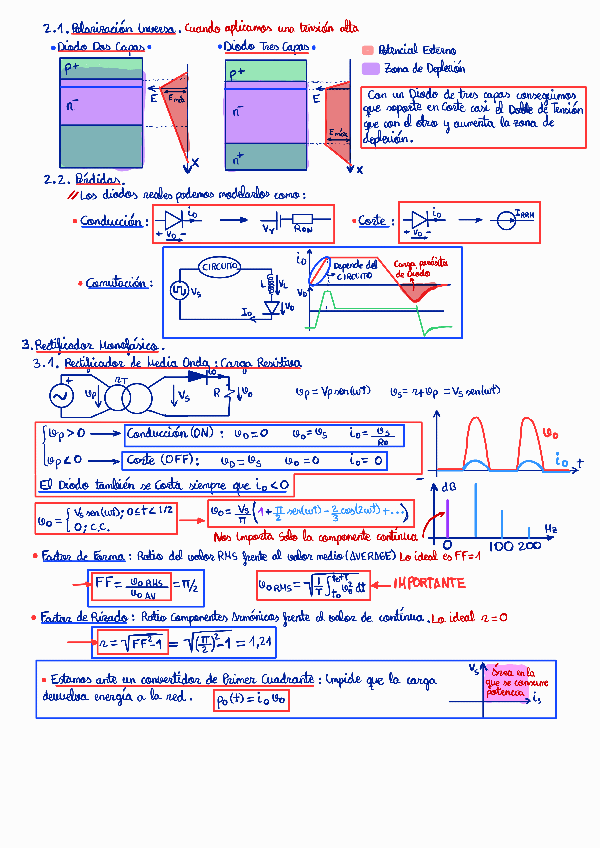 2.1. Polarización Inversa. Cuando aplicamos una tensión alta
• Diodo Dos Capas •
• Diodo Tres Capas •
Potencial Externo
Zona de Deplexión
p+
n-
E
Emáx
x
p+
n-
n+
E
Emáx
x
Con un Diodo de tres capas conseguimos
que soporte en Corte casi el Doble de Tensión
que con el otro y aumenta la zona de
deplexión.
2.2. Pérdidas.
// Los diodos reales podemos modelarlos como:
• Conducción: iD + VD - → Vγ RON
• Corte: iD + VD - → IRRM
• Conmutación:
CIRCUITO
VS
L
VL
ID
VD
iD
VD
Depende del
CIRCUITO
Carga parásita
de Diodo
3. Rectificador Monofásico.
3.1. Rectificador de Media Onda: Carga Resistiva
υp
rT
VS
R
υo
υp = Vp sen(wt) υs = r+υp = Vs sen(wt)
υp > 0 → Conducción (ON): υD = 0 υo = υs io = υs/Ro
υp < 0 → Corte (OFF): υD = υs υo = 0 io = 0
El Diodo también se Corta siempre que io < 0
υo
io
t
υo = { Vs sen(wt); 0 ≤ t < 1/2
0; c.c.
υo = Vs/π (1 + π/2 sen(wt) - 2/3 cos(2wt) + ...)
Nos importa Solo la componente continua
dB
Hz
0 100 200
• Factor de Forma: Ratio del valor RMS frente al valor medio (AVERAGE) Lo ideal es FF=1
FF = υo RMS / υo AV = π/2
υo RMS = √(1/T ∫ to to+T υo² dt) ← IMPORTANTE
• Factor de Rizado: Ratio Componentes Armónicos frente al valor de continua. Lo ideal r=0
r = √(FF²-1) = √((π/2)²-1) = 1,21
• Estamos ante un convertidor de Primer Cuadrante: Impide que la carga
devuelva energía a la red. po(t) = io υo
Vs
Área en la
que se consume
potencia
is